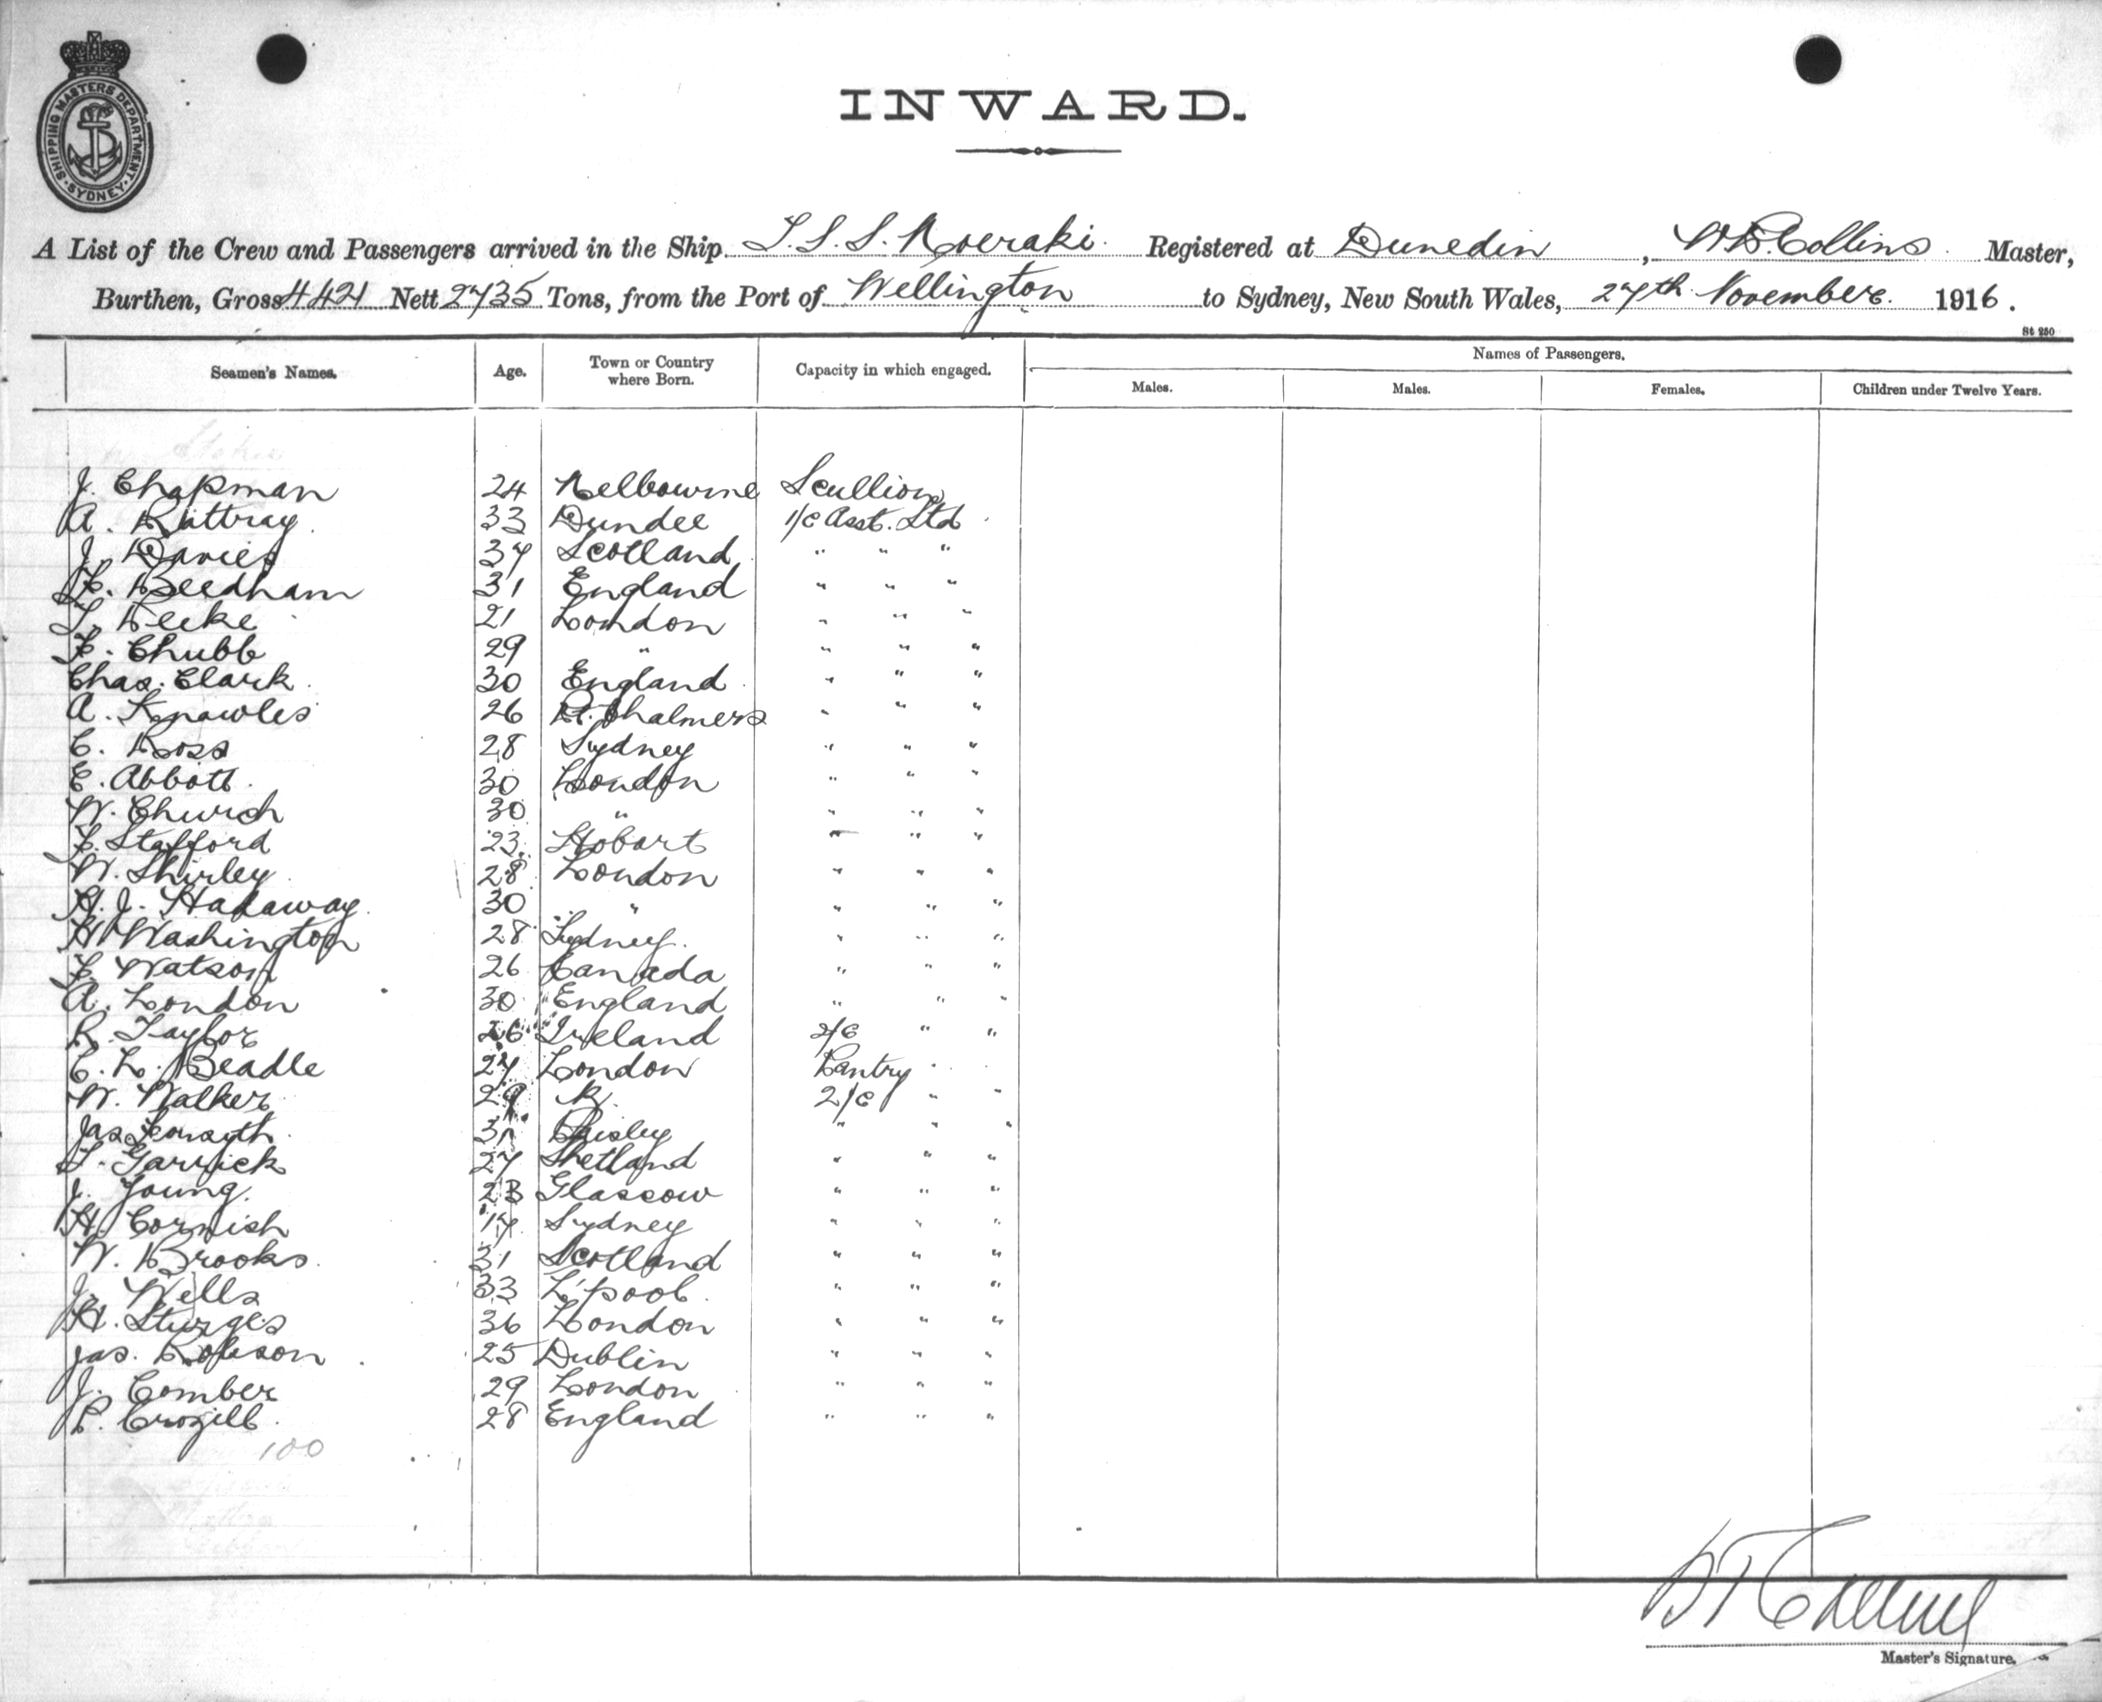 SHIPPING MASTERS DEPARTMENT. SYDNEY.
INWARD.
A List of the Crew and Passengers arrived in the Ship T.S.S. Moeraki. Registered at Dunedin, Collins Master,
Burthen, Gross 4421 Nett 2735 Tons, from the Port of Wellington to Sydney, New South Wales, 27th November. 1916.
St 250
Seamen's Names. Age. Town or Country where Born. Capacity in which engaged. Names of Passengers.
Males. Males. Females. Children under Twelve Years.
J. Chapman 24 Melbourne Scullion
A. Rattray 33 Dundee 1/C Asst. Std
J. Davies 37 Scotland " " "
F. Beedham 31 England " " "
21 London " " "
F. Chubb 29 " " " "
Chas. Clark 30 England " " "
A. Knowles 26 Pt. Chalmers " " "
C. Ross 28 Sydney " " "
E. Abbott 30 London " " "
W. Church 30 " " " "
F. Stafford 23 Hobart " " "
W. Shirley 28 London " " "
H. J. Hadaway 30 " " " "
H Washington 28 Sydney. " " "
F. Watson 26 Canada " " "
A. London 30 England " " "
R. Taylor 26 Ireland 2/C " "
C. L. Beadle 27 London Pantry
W. Walker 29 2/C " "
Jas Forsyth 31 Paisley " " "
T. Garrick 27 Shetland " " "
J. Young. 23 Glascow " " "
H. Cornish 17 Sydney " " "
W. Brooks 31 Scotland " " "
J. Wells 33 L'pool. " " "
H. Sturges 36 London " " "
Jas. Robson 25 Dublin " " "
J. Comber 29 London " " "
P. 28 England " " "
100
Master's Signature.